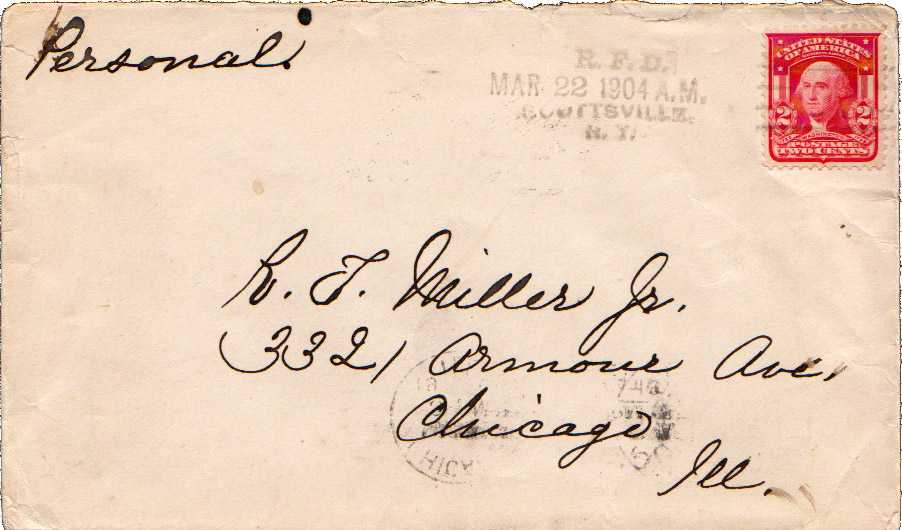 Personal.
R. F. D.
MAR 22 1904 A.M.
SCOTTSVILLE,
N. Y.
UNITED STATES
OF AMERICA
2 2
WASHINGTON
POSTAGE
TWO CENTS
R. T. Miller Jr.
3321 Armour Ave.
Chicago
Ill.